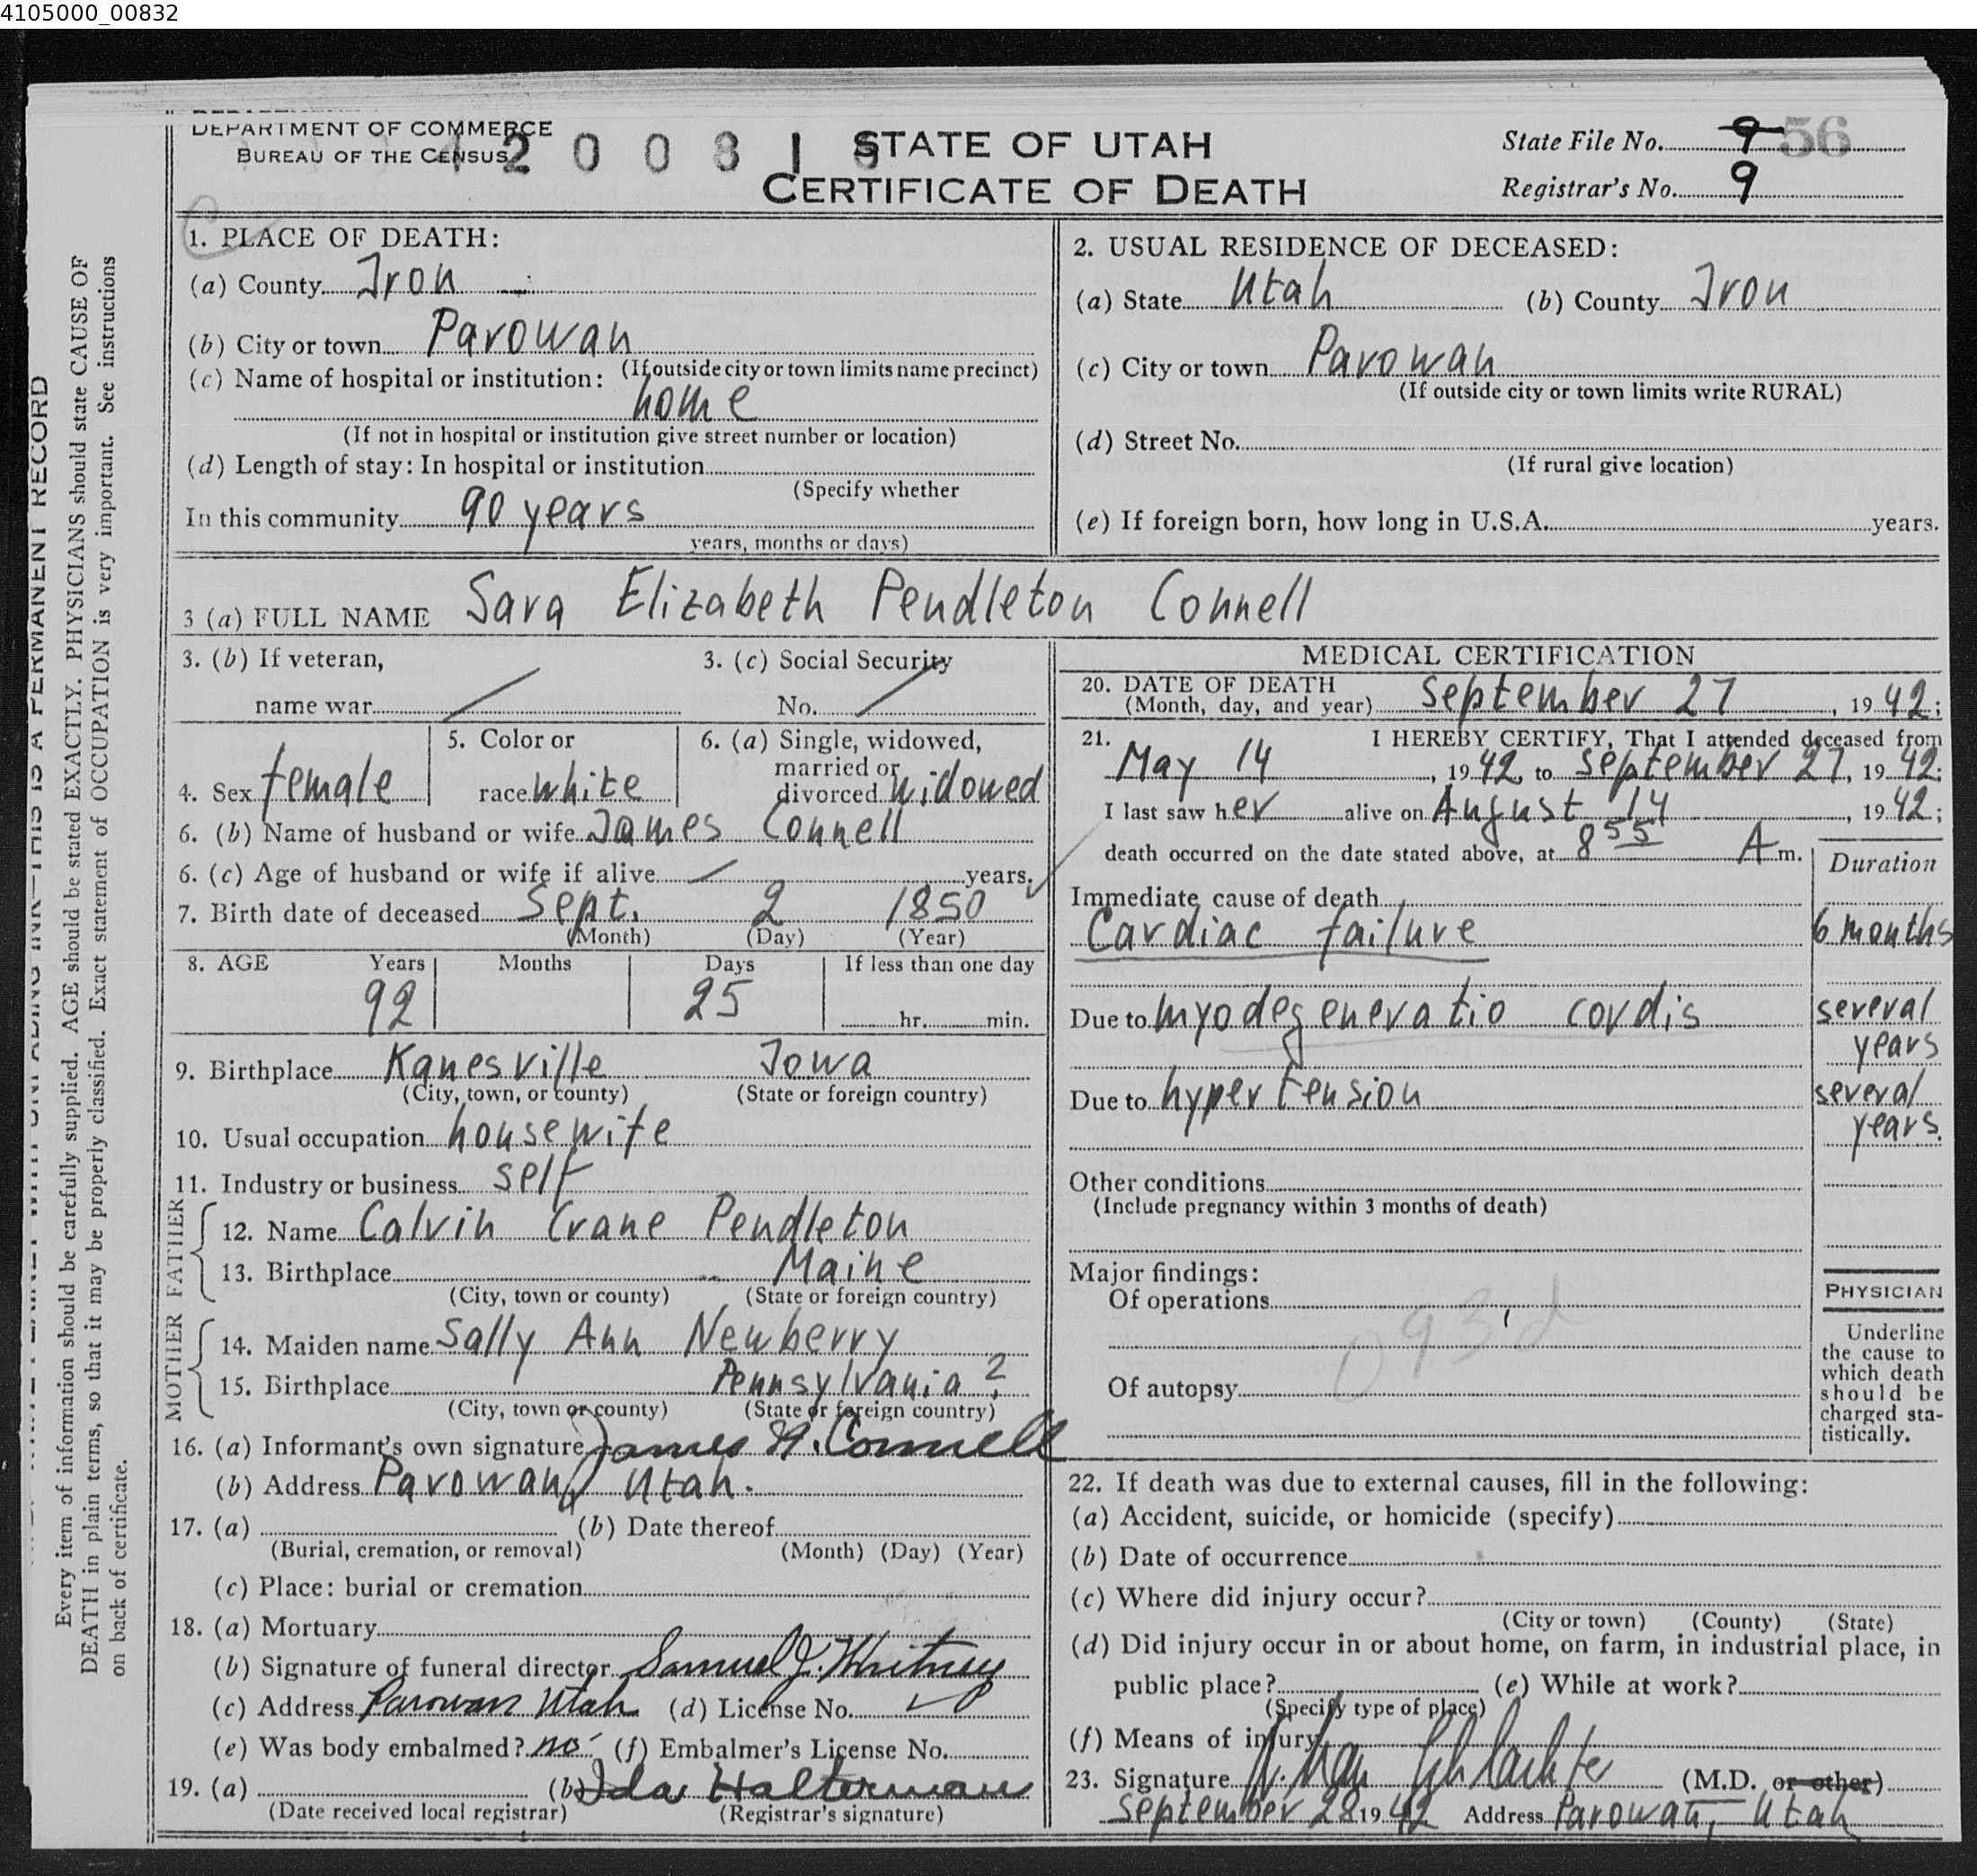 4105000_00832
DEPARTMENT OF COMMERCE
BUREAU OF THE CENSUS
STATE OF UTAH
CERTIFICATE OF DEATH
State File No. 9 56
Registrar's No. 9
1. PLACE OF DEATH:
(a) County Iron
(b) City or town Parowan
(If outside city or town limits name precinct)
(c) Name of hospital or institution:
home
(If not in hospital or institution give street number or location)
(d) Length of stay: In hospital or institution
(Specify whether
In this community 90 years
years, months or days)
2. USUAL RESIDENCE OF DECEASED:
(a) State Utah (b) County Iron
(c) City or town Parowan
(If outside city or town limits write RURAL)
(d) Street No.
(If rural give location)
(e) If foreign born, how long in U.S.A. years.
3 (a) FULL NAME Sara Elizabeth Pendleton Connell
3. (b) If veteran,
name war
3. (c) Social Security
No.
4. Sex female
5. Color or
race white
6. (a) Single, widowed,
married or
divorced widowed
6. (b) Name of husband or wife James Connell
6. (c) Age of husband or wife if alive years.
7. Birth date of deceased Sept. 2 1850
(Month) (Day) (Year)
8. AGE Years Months Days If less than one day
92 25 hr. min.
9. Birthplace Kanesville Iowa
(City, town, or county) (State or foreign country)
10. Usual occupation housewife
11. Industry or business self
FATHER
12. Name Calvin Crane Pendleton
13. Birthplace Maine
(City, town or county) (State or foreign country)
MOTHER
14. Maiden name Sally Ann Newberry
15. Birthplace Pennsylvania ?
(City, town or county) (State or foreign country)
16. (a) Informant's own signature James H. Connell
(b) Address Parowan, Utah.
17. (a) (b) Date thereof
(Burial, cremation, or removal) (Month) (Day) (Year)
(c) Place: burial or cremation
18. (a) Mortuary
(b) Signature of funeral director Samuel J. Whitney
(c) Address Parowan Utah (d) License No.
(e) Was body embalmed? no (f) Embalmer's License No.
19. (a) (b) Ida Halterman
(Date received local registrar) (Registrar's signature)
MEDICAL CERTIFICATION
20. DATE OF DEATH
(Month, day, and year) September 27, 1942;
21. I HEREBY CERTIFY, That I attended deceased from
May 14, 1942, to September 27, 1942;
I last saw her alive on August 14, 1942;
death occurred on the date stated above, at 8 55 A m.
Duration
Immediate cause of death
Cardiac failure 6 months
Due to myodegeneratio cordis several
years
Due to hypertension several
years.
Other conditions
(Include pregnancy within 3 months of death)
Major findings:
Of operations
093d
Of autopsy
PHYSICIAN
Underline
the cause to
which death
should be
charged sta-
tistically.
22. If death was due to external causes, fill in the following:
(a) Accident, suicide, or homicide (specify)
(b) Date of occurrence
(c) Where did injury occur?
(City or town) (County) (State)
(d) Did injury occur in or about home, on farm, in industrial place, in
public place? (e) While at work?
(Specify type of place)
(f) Means of injury
23. Signature (M.D. or other)
September 28 1942 Address Parowan, Utah
Every item of information should be carefully supplied. AGE should be stated EXACTLY. PHYSICIANS should state CAUSE OF
DEATH in plain terms, so that it may be properly classified. Exact statement of OCCUPATION is very important. See instructions
on back of certificate.